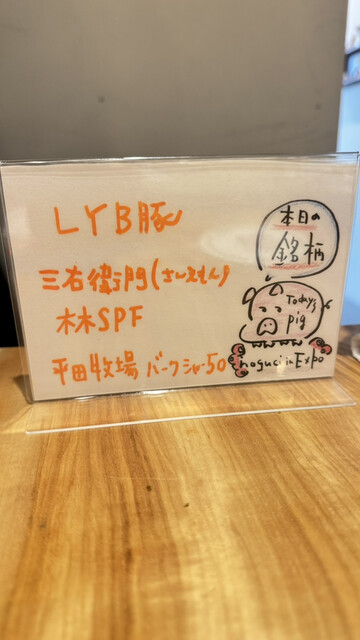 LYB豚
三右衛門(さんえもん)
林SPF
平田牧場 バークシャー50
本日の
銘柄
Today's
pig
noguci in Expo